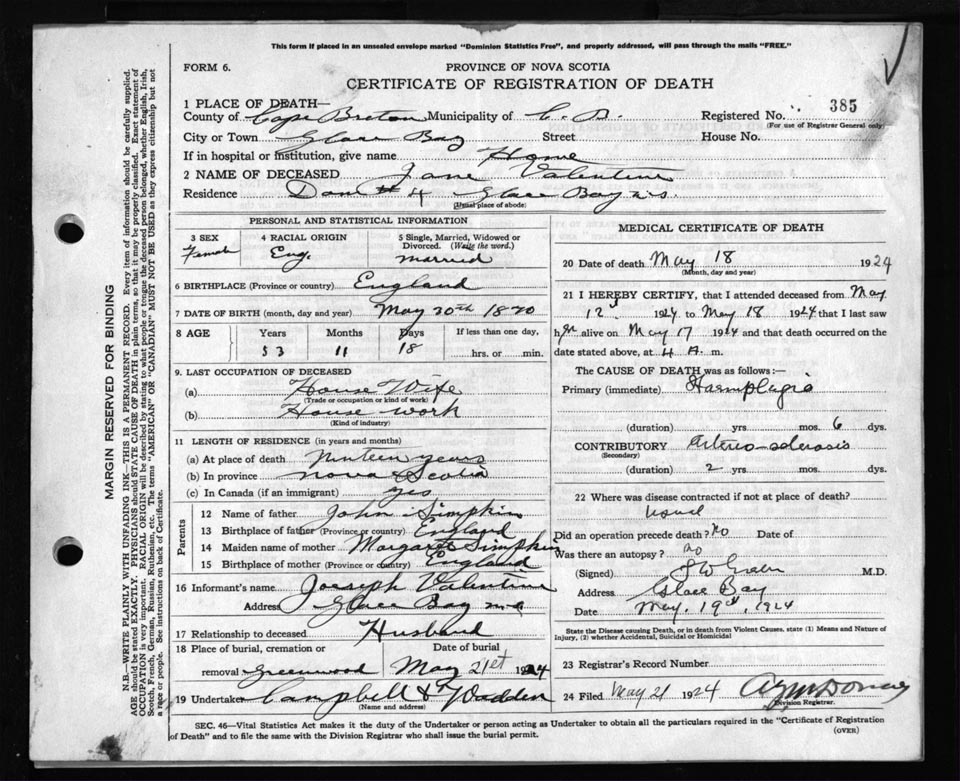 This form if placed in an unsealed envelope marked "Dominion Statistics Free", and properly addressed, will pass through the mails "FREE."
FORM 6.
PROVINCE OF NOVA SCOTIA
CERTIFICATE OF REGISTRATION OF DEATH
1 PLACE OF DEATH—
385
County of Cape Breton Municipality of C. B. Registered No.
(For use of Registrar General only)
City or Town Glace Bay Street House No.
If in hospital or institution, give name Home
2 NAME OF DECEASED Jane Valentine
Residence Dom # 4 Glace Bay N.S.
(Usual place of abode)
PERSONAL AND STATISTICAL INFORMATION
3 SEX Female
4 RACIAL ORIGIN Eng.
5 Single, Married, Widowed or Divorced. (Write the word.) married
6 BIRTHPLACE (Province or country) England
7 DATE OF BIRTH (month, day and year) May 30th 1870
8 AGE Years Months Days If less than one day,
53 11 18 hrs. or min.
9. LAST OCCUPATION OF DECEASED
(a) House Wife
(Trade or occupation or kind of work)
(b) House work
(Kind of industry)
11 LENGTH OF RESIDENCE (in years and months)
(a) At place of death Ninteen years
(b) In province Nova Scotia
(c) In Canada (if an immigrant) yes
Parents
12 Name of father John Simpkins
13 Birthplace of father (Province or country) England
14 Maiden name of mother Margaret Simpkins
15 Birthplace of mother (Province or country) England
16 Informant's name Joeseph Valentine
Address Glace Bay
17 Relationship to deceased Husband
18 Place of burial, cremation or Date of burial
removal Greenwood May 21st 1924
19 Undertaker Campbell & Wadden
(Name and address)
MEDICAL CERTIFICATE OF DEATH
20 Date of death May 18 1924
(Month, day and year)
21 I HEREBY CERTIFY, that I attended deceased from May
12 1924 to May 18 1924 that I last saw
her alive on May 17 1924 and that death occurred on
date stated above, at 4 A. m.
The CAUSE OF DEATH was as follows:—
Primary (immediate) Haemplagia
(duration) yrs mos. 6 dys.
CONTRIBUTORY Arterio-sclerosis
(Secondary)
(duration) 2 yrs mos. dys.
22 Where was disease contracted if not at place of death?
usual
Did an operation precede death? No Date of
Was there an autopsy? no
(Signed) M.D.
Address Glace Bay
Date May. 19th, 1924
State the Disease causing Death, or in death from Violent Causes, state (1) Means and Nature of
Injury, (2) whether Accidental, Suicidal or Homicidal
23 Registrar's Record Number
24 Filed May 21 1924
Division Registrar.
SEC. 46—Vital Statistics Act makes it the duty of the Undertaker or person acting as Undertaker to obtain all the particulars required in the "Certificate of Registration
of Death" and to file the same with the Division Registrar who shall issue the burial permit.
(OVER)
MARGIN RESERVED FOR BINDING
N.B.—WRITE PLAINLY WITH UNFADING INK—THIS IS A PERMANENT RECORD. Every item of information should be carefully supplied.
AGE should be stated EXACTLY. PHYSICIANS should STATE CAUSE OF DEATH in plain terms, so that it may be properly classified. Exact statement of
OCCUPATION is very important. RACIAL ORIGIN will be described by stating to what people or tongue the deceased person belonged, whether English, Irish,
Scotch, French, German, Russian, Ruthenian, etc. The terms "AMERICAN" or "CANADIAN" MUST NOT BE USED as they express citizenship but not
a race or people. See instructions on back of Certificate.